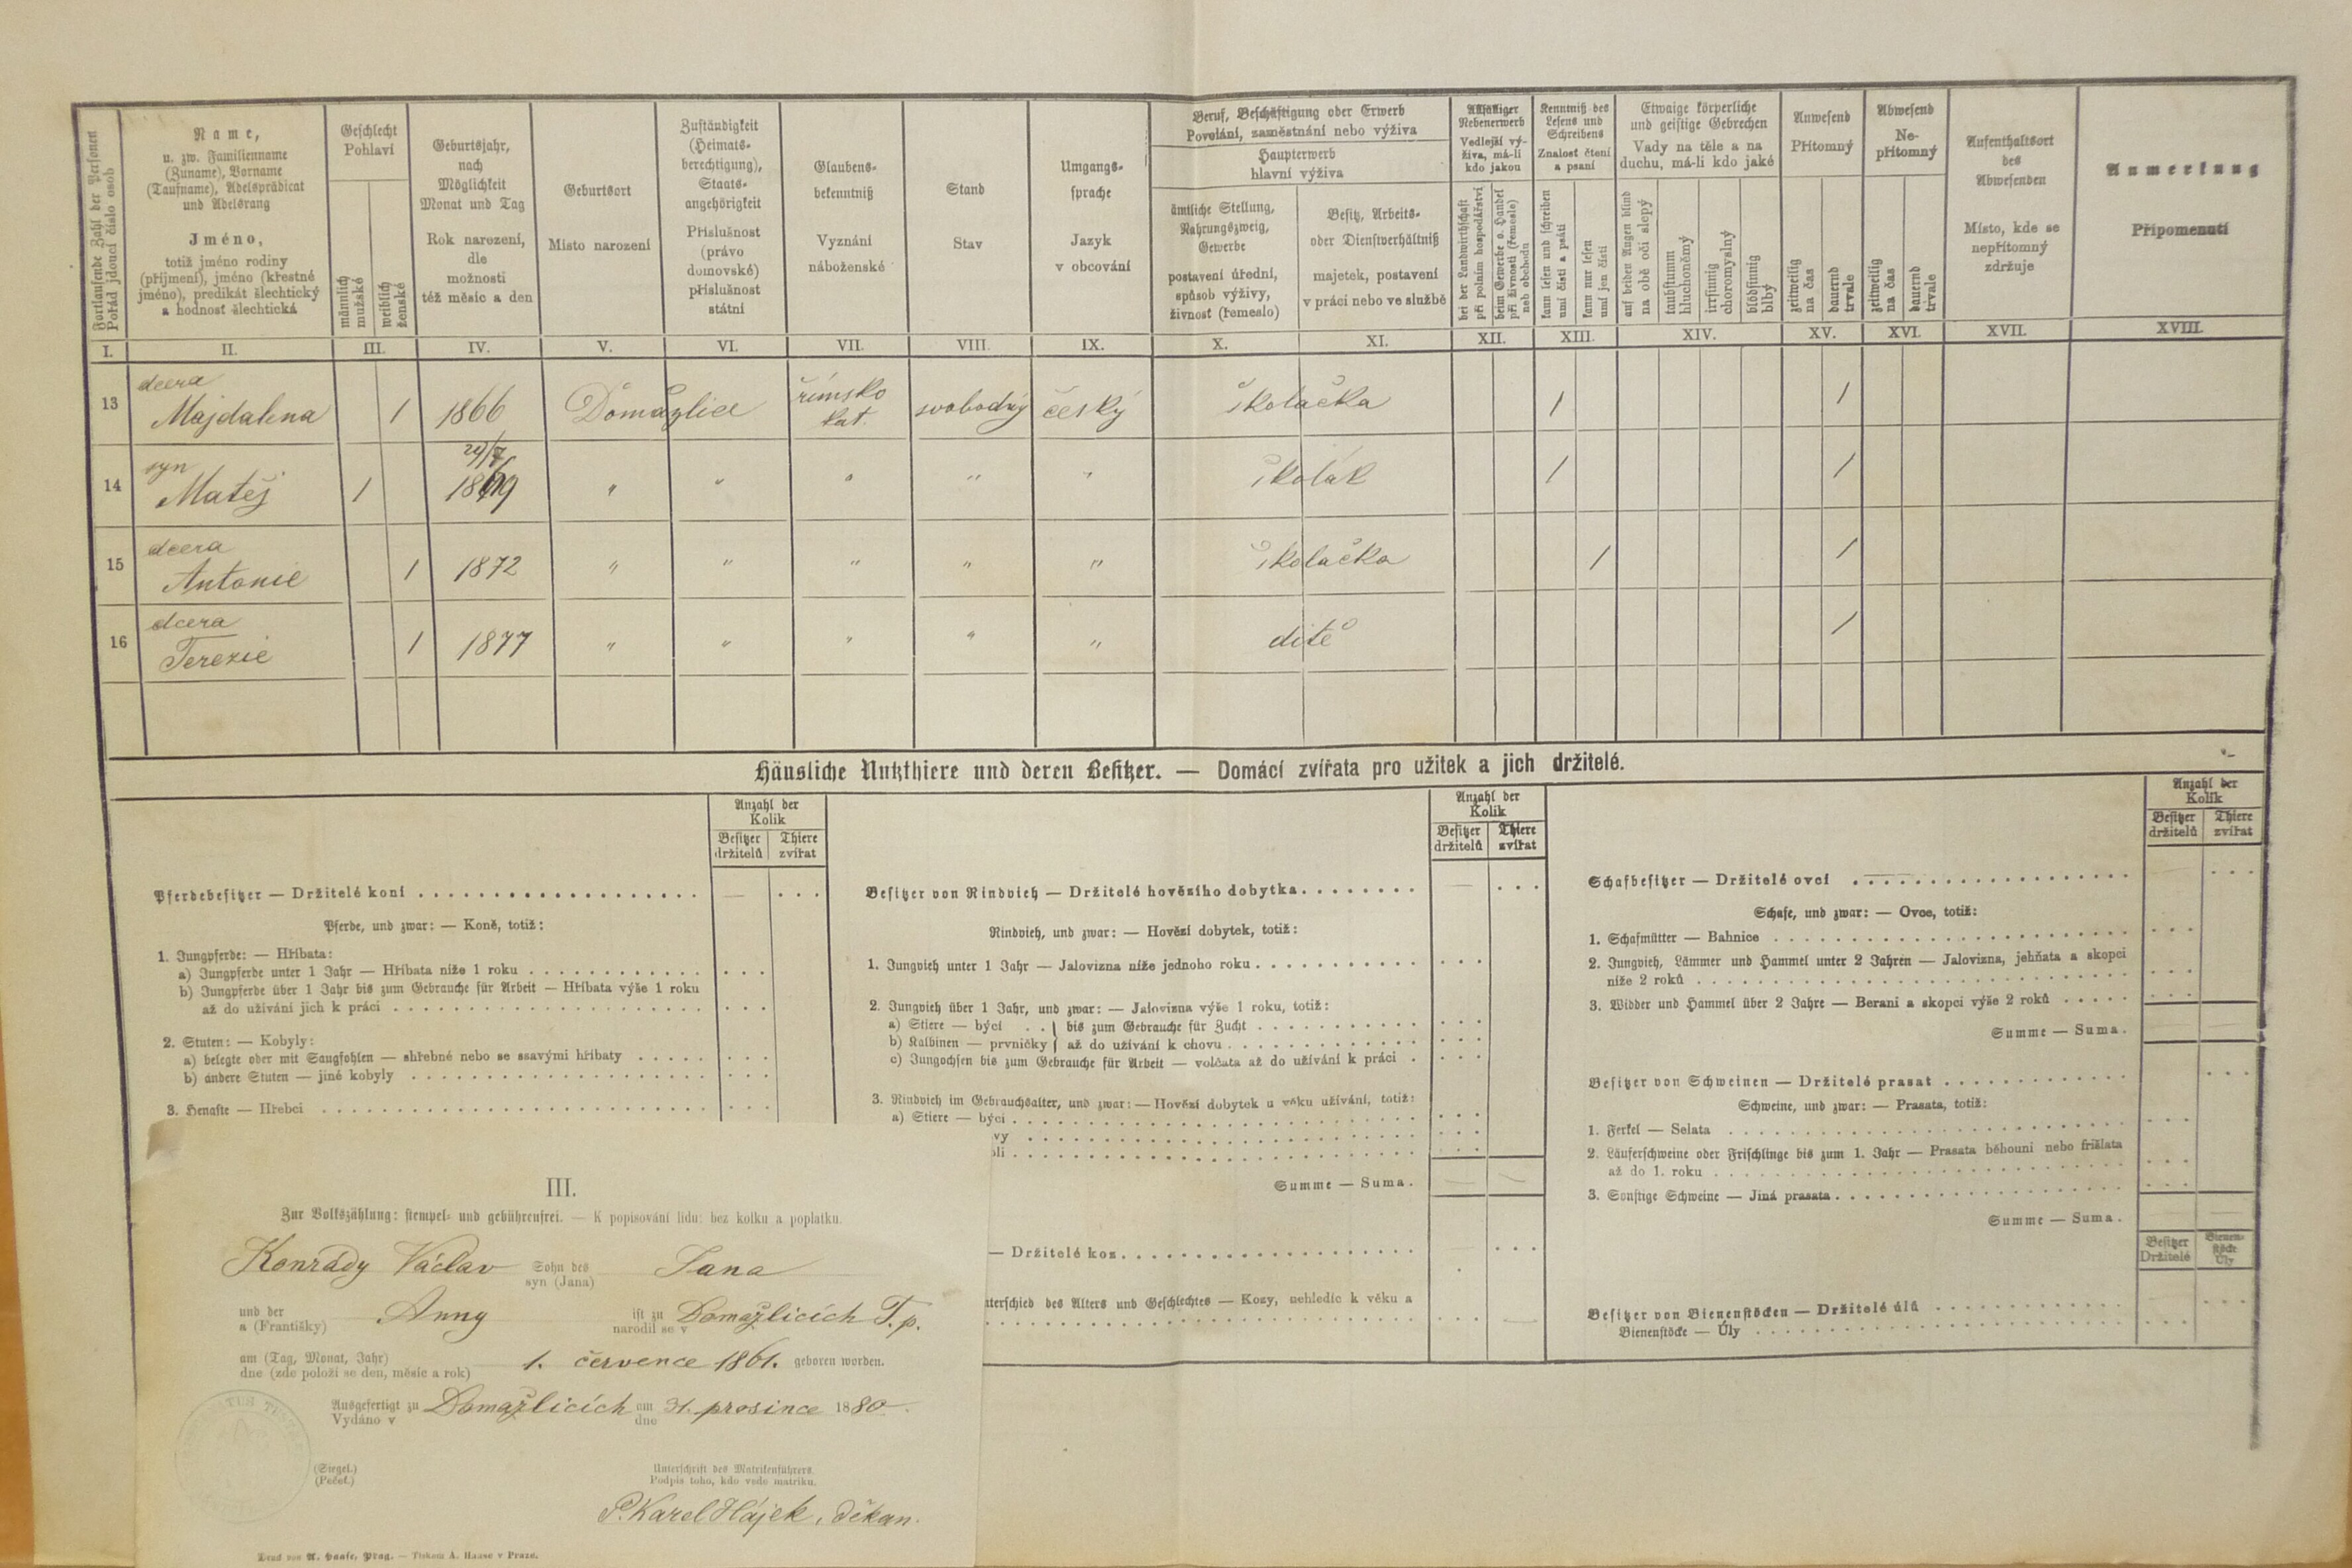 Fortlaufende Zahl der Personen
Pořád jdoucí číslo osob
Name,
u. zw. Familienname
(Zuname), Vorname
(Taufname), Adelsprädicat
und Adelsrang
Jméno,
totiž jméno rodiny
(příjmení), jméno (křestné
jméno), predikát šlechtický
a hodnosť šlechtická
Geschlecht
Pohlaví
männlich
mužské
weiblich
ženské
Geburtsjahr,
nach
Möglichkeit
Monat und Tag
Rok narození,
dle
možnosti
též měsíc a den
Geburtsort
Místo narození
Zuständigkeit
(Heimats-
berechtigung),
Staats-
angehörigkeit
Příslušnost
(právo
domovské)
příslušnost
státní
Glaubens-
bekenntniß
Vyznání
náboženské
Stand
Stav
Umgangs-
sprache
Jazyk
v obcování
Beruf, Beschäftigung oder Erwerb
Povolání, zaměstnání nebo výživa
Haupterwerb
hlavní výživa
ämtliche Stellung,
Nahrungszweig,
Gewerbe
postavení úřední,
způsob výživy,
živnosť (řemeslo)
Besitz, Arbeits-
oder Dienstverhältniß
majetek, postavení
v práci nebo ve službě
Allfälliger
Nebenerwerb
Vedlejší vý-
živa, má-li
kdo jakou
bei der Landwirthschaft
při polním hospodářství
beim Gewerbe o. Handel
při živnosti (řemesle)
neb obchodu
Kenntniß des
Lesens und
Schreibens
Znalosť čtení
a psaní
kann lesen und schreiben
umí čísti a psáti
kann nur lesen
umí jen čísti
Etwaige körperliche
und geistige Gebrechen
Vady na těle a na
duchu, má-li kdo jaké
auf beiden Augen blind
na obě oči slepý
taubstumm
hluchoněmý
irrsinnig
choromyslný
blödsinnig
blbý
Anwesend
Přítomný
zeitweilig
na čas
dauernd
trvale
Abwesend
Ne-
přítomný
zeitweilig
na čas
dauernd
trvale
Aufenthaltsort
des
Abwesenden
Místo, kde se
nepřítomný
zdržuje
Anmerkung
Připomenutí
I. II. III. IV. V. VI. VII. VIII. IX. X. XI. XII. XIII. XIV. XV. XVI. XVII. XVIII.
dcera
13 Majdalena 1 1866 Domažlice římsko kat. svobodný český školačka 1 1
syn 24/7
14 Matěj 1 1869 " " " " " školák 1 1
dcera
15 Antonie 1 1872 " " " " " školačka 1 1
dcera
16 Terezie 1 1877 " " " " " dítě 1
Häusliche Nutzthiere und deren Besitzer. — Domácí zvířata pro užitek a jich držitelé.
Anzahl der
Kolik
Besitzer
držitelů
Thiere
zvířat
Pferdebesitzer — Držitelé koní
Pferde, und zwar: — Koně, totiž:
1. Jungpferde: — Hříbata:
a) Jungpferde unter 1 Jahr — Hříbata níže 1 roku
b) Jungpferde über 1 Jahr bis zum Gebrauche für Arbeit — Hříbata výše 1 roku
až do užívání jich k práci
2. Stuten: — Kobyly:
a) belegte oder mit Saugfohlen — shřebné nebo se ssavými hříbaty
b) andere Stuten — jiné kobyly
3. Hengste — Hřebci
Anzahl der
Kolik
Besitzer
držitelů
Thiere
zvířat
Besitzer von Rindvieh — Držitelé hovězího dobytka
Rindvieh, und zwar: — Hovězí dobytek, totiž:
1. Jungvieh unter 1 Jahr — Jalovizna níže jednoho roku
2. Jungvieh über 1 Jahr, und zwar: — Jalovizna výše 1 roku, totiž:
a) Stiere — býci . . } bis zum Gebrauche für Zucht
b) Kalbinen — prvničky } až do užívání k chovu
c) Jungochsen bis zum Gebrauche für Arbeit — volčata až do užívání k práci
3. Rindvieh im Gebrauchsalter, und zwar: — Hovězí dobytek u věku užívání, totiž:
a) Stiere — býci
vy
oli
Summe — Suma.
— Držitelé koz
nterschied des Alters und Geschlechtes — Kozy, nehledíc k věku a
Anzahl der
Kolik
Besitzer
držitelů
Thiere
zvířat
Schafbesitzer — Držitelé ovcí
Schafe, und zwar: — Ovce, totiž:
1. Schafmütter — Bahnice
2. Jungvieh, Lämmer und Hammel unter 2 Jahren — Jalovizna, jehňata a skopci
níže 2 roků
3. Widder und Hammel über 2 Jahre — Berani a skopci výše 2 roků
Summe — Suma.
Besitzer von Schweinen — Držitelé prasat
Schweine, und zwar: — Prasata, totiž:
1. Ferkel — Selata
2. Läuferschweine oder Frischlinge bis zum 1. Jahr — Prasata běhouni nebo frišlata
až do 1. roku
3. Sonstige Schweine — Jiná prasata
Summe — Suma.
Besitzer
Držitelé
Bienen-
stöcke
Úly
Besitzer von Bienenstöcken — Držitelé úlů
Bienenstöcke — Úly
III.
Zur Volkszählung: stempel- und gebührenfrei. — K popisování lidu: bez kolku a poplatku.
Konrády Václav Sohn des
syn (Jana) Jana
und der
a (Františky) Anny ist zu
narodil se v Domažlicích T. p.
am (Tag, Monat, Jahr)
dne (zde položí se den, měsíc a rok) 1. července 1861. geboren worden.
Ausgefertigt zu
Vydáno v Domažlicích am
dne 31. prosince 1880.
(Siegel.)
(Pečeť.)
Unterschrift des Matrikenführers.
Podpis toho, kdo vede matriku.
P. Karel Hájek, děkan.
Druck von A. Haase, Prag. — Tiskem A. Haase v Praze.